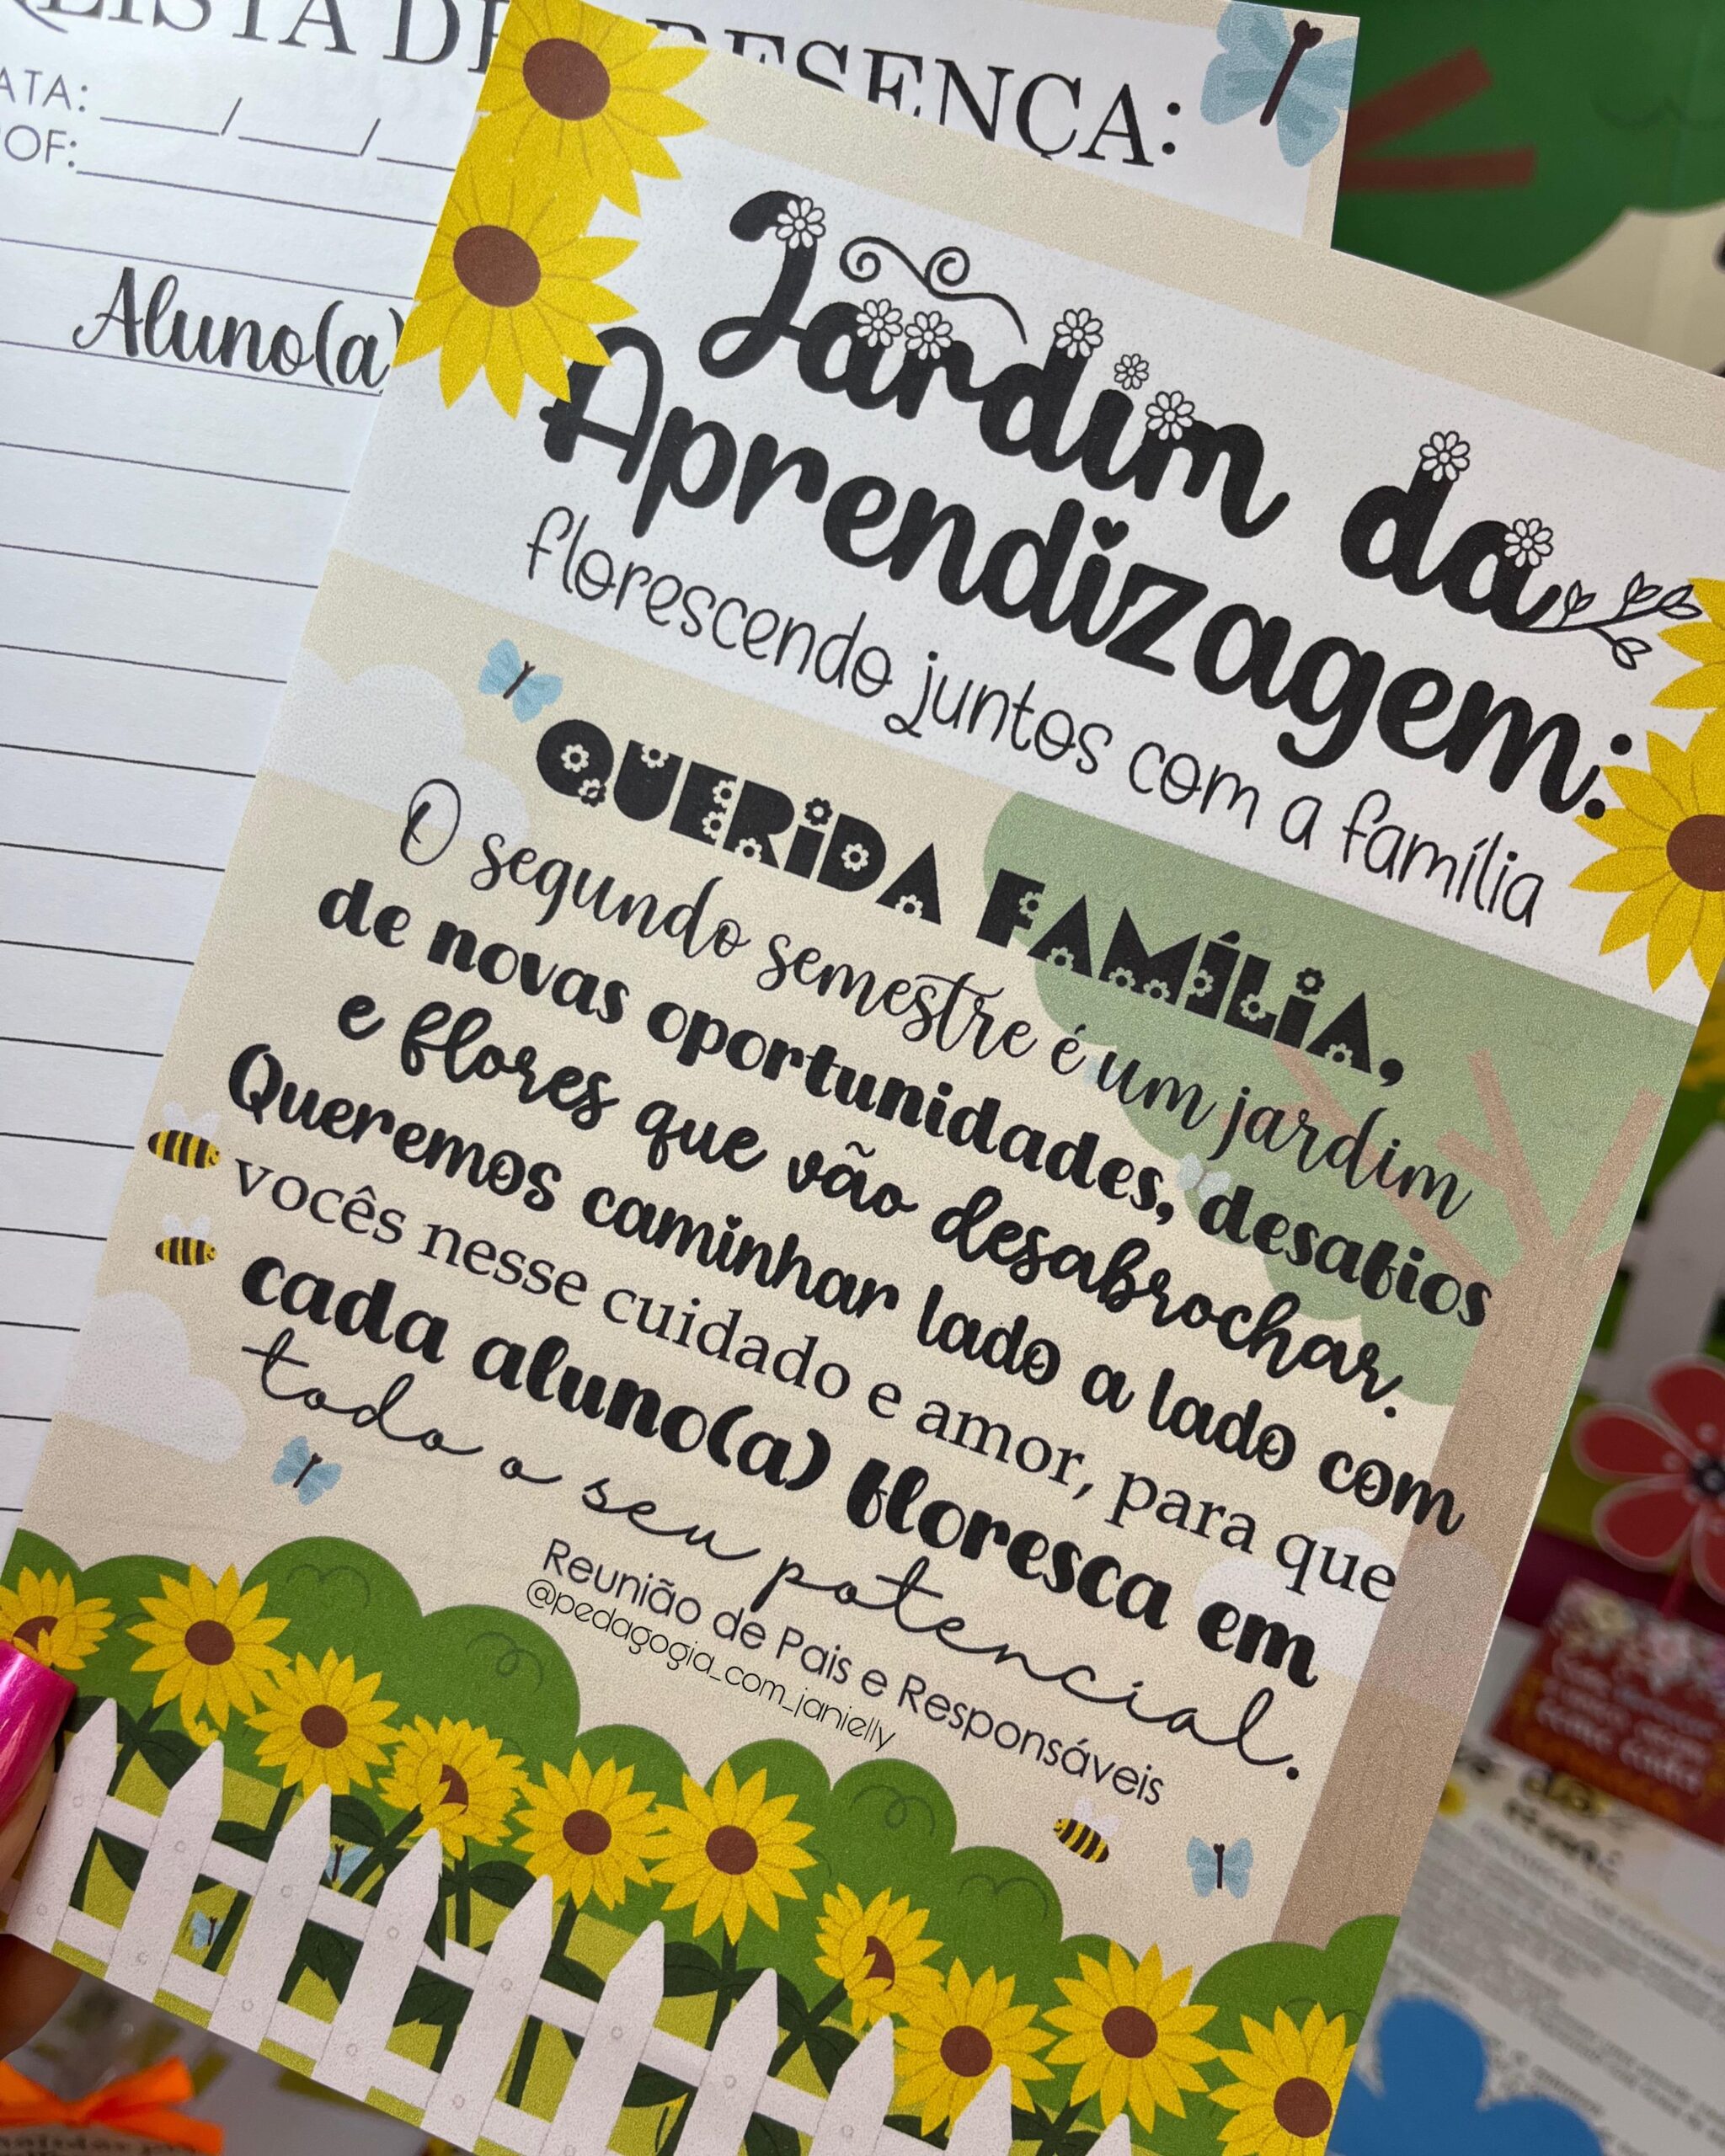 LISTA DE PRESENÇA:
ATA: ____/____/____
OF:
Aluno(a)
Jardim da
Aprendizagem:
florescendo juntos com a família
QUERIDA FAMÍLIA,
O segundo semestre é um jardim
de novas oportunidades, desafios
e flores que vão desabrochar.
Queremos caminhar lado a lado com
vocês nesse cuidado e amor, para que
cada aluno(a) floresca em
todo o seu potencial.
Reunião de Pais e Responsáveis
@pedagogia_com_janielly